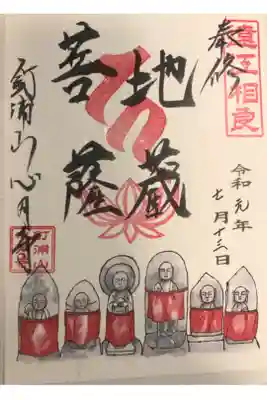 相良
奉修
地蔵
菩薩
令和元年
七月十三日
釘浦山心月寺